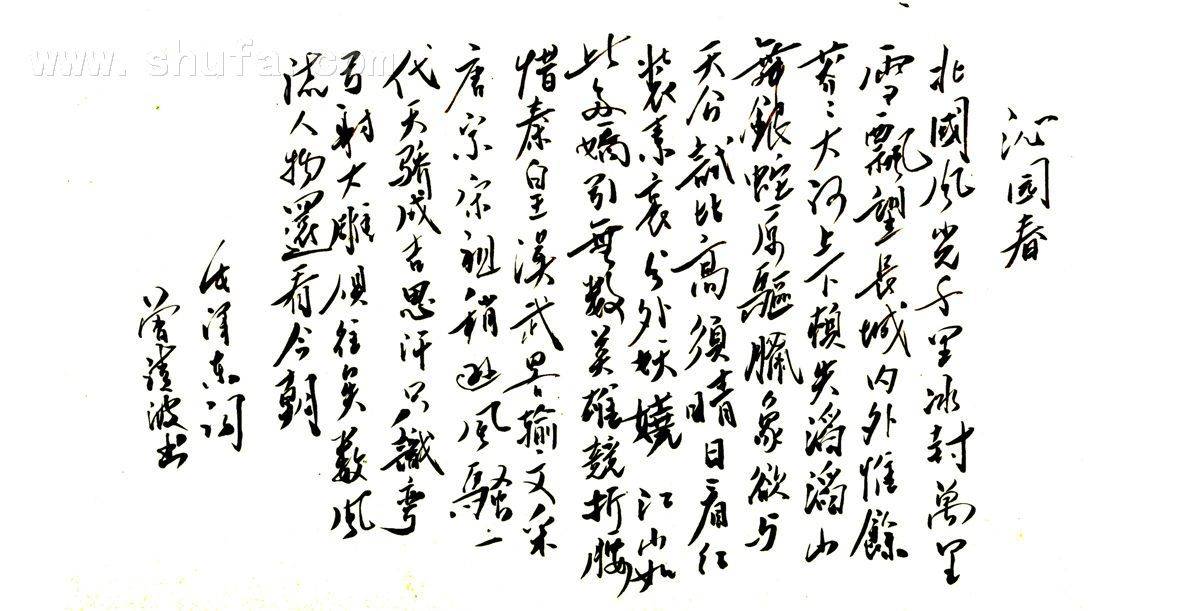 www.shufa.com
沁园春
北國风光千里冰封萬里
雪飄望長城内外惟餘
莽々大河上下頓失滔滔山
舞銀蛇原驅臘象欲与
天公試比高須晴日看红
裝素裹分外妖嬈 江山如
此多嬌引無数英雄競折腰
惜秦皇漢武畧输文采
唐宗宋祖稍逊风騷一
代天驕成吉思汗只識彎
弓射大雕俱往矣数风
流人物還看今朝
毛泽东词
曾波书